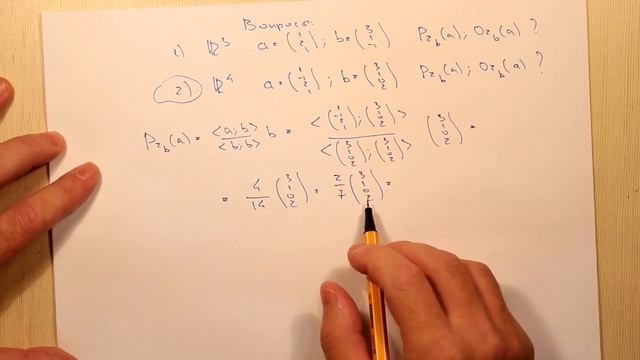 Вопросы:
1) ℝ³ a = (1 2 1); b = (3 1 -1) Pr_b(a); Or_b(a)?
2) ℝ⁴ a = (1 -1 2 1); b = (3 1 0 2) Pr_b(a); Or_b(a)?
Pr_b(a) = <a; b> / <b; b> b = <(1 -1 2 1); (3 1 0 2)> / <(3 1 0 2); (3 1 0 2)> (3 1 0 2) =
= 4/14 (3 1 0 2) = 2/7 (3 1 0 2) =